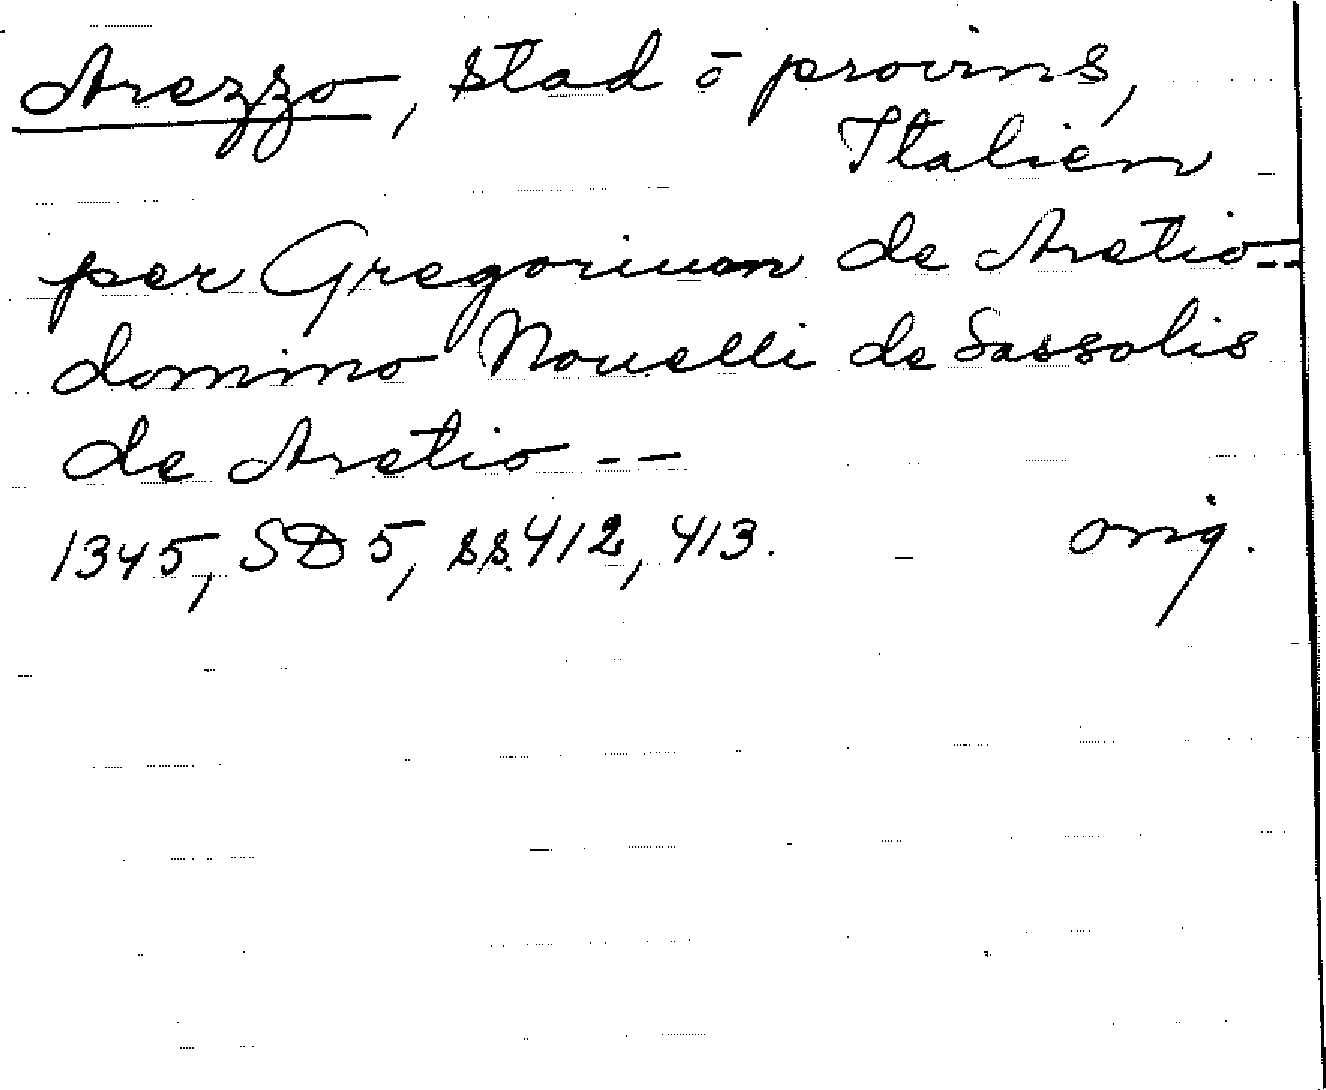 Arezzo, stad ō provins,
Italien
per Gregorium de Aretio --
domino Nouelli de Sassolis
de Aretio --
1345, SD 5, ss. 412, 413. orig.